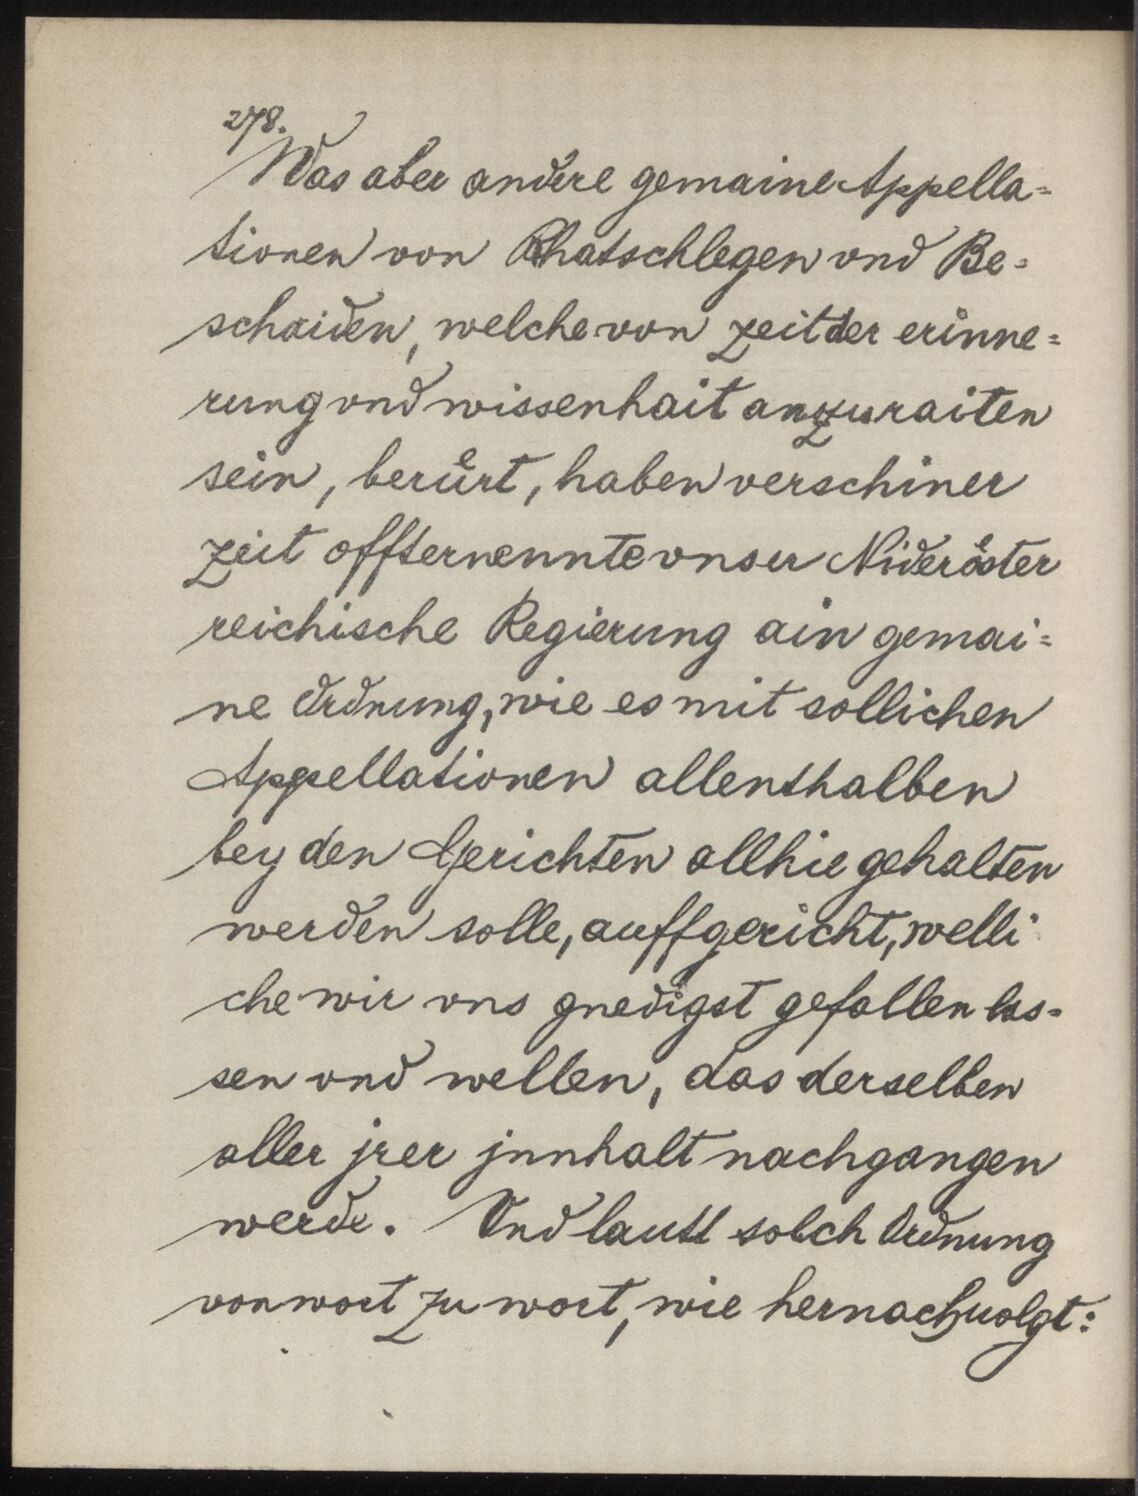 278.
Was aber andere gemaine Appella=
tionen von Rhatschlegen vnd Be=
schaiden, welche von zeit der erinne=
rung vnd wissenhait anzuraiten
sein, berůrt, haben verschiner
zeit offternennte vnser Niderőster
reichische Regierung ain gemai=
ne Ordnung, wie es mit sollichen
Appellationen allenthalben
bey den Gerichten allhie gehalten
werden solle, auffgericht, welli
che wir vns gnedigst gefallen las=
sen vnd wellen, das derselben
aller jrer jnnhalt nachgangen
werde. Vnd lautt solch Ordnung
von wort zu wort, wie hernachuolgt: